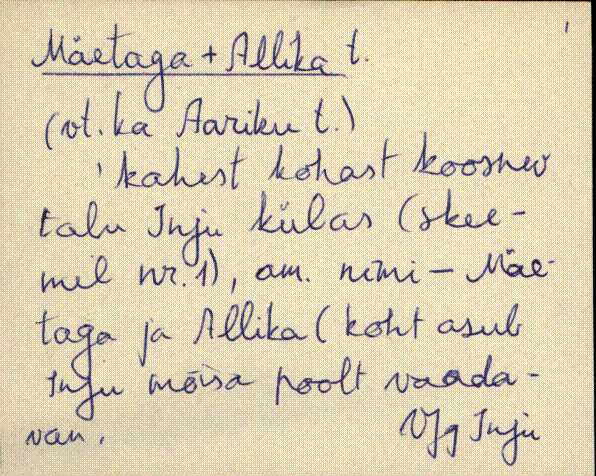 Mäetaga + Allika t.
(vt. ka Aariku t.)
'kahest kohast koosnev
talu Inju külas (skee-
mil nr. 1), am. nimi – Mäe-
taga ja Allika (koht asub
Inju mõisa poolt vaada-
van.
VJg Inju